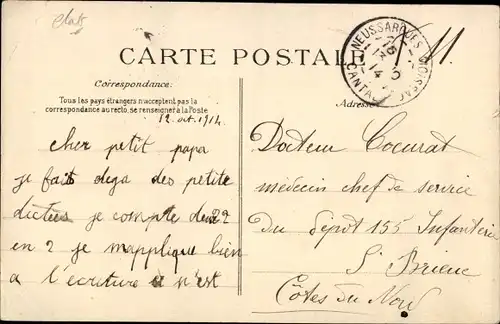 CARTE POSTALE
F.M.
NEUSSARGUES
CANTAL
Correspondance
Tous les pays étrangers n'acceptent pas la
correspondance au recto, se renseigner à la Poste
Adresse
12 oct. 1914
Cher petit papa
je fait deja des petite
dictées je compte de 2
en 2 je mapplique bien
a l'ecriture n'est
Docteur Coeurat
médecin chef de service
du dépôt 155 Infanterie
St Brieuc
Côtes du Nord